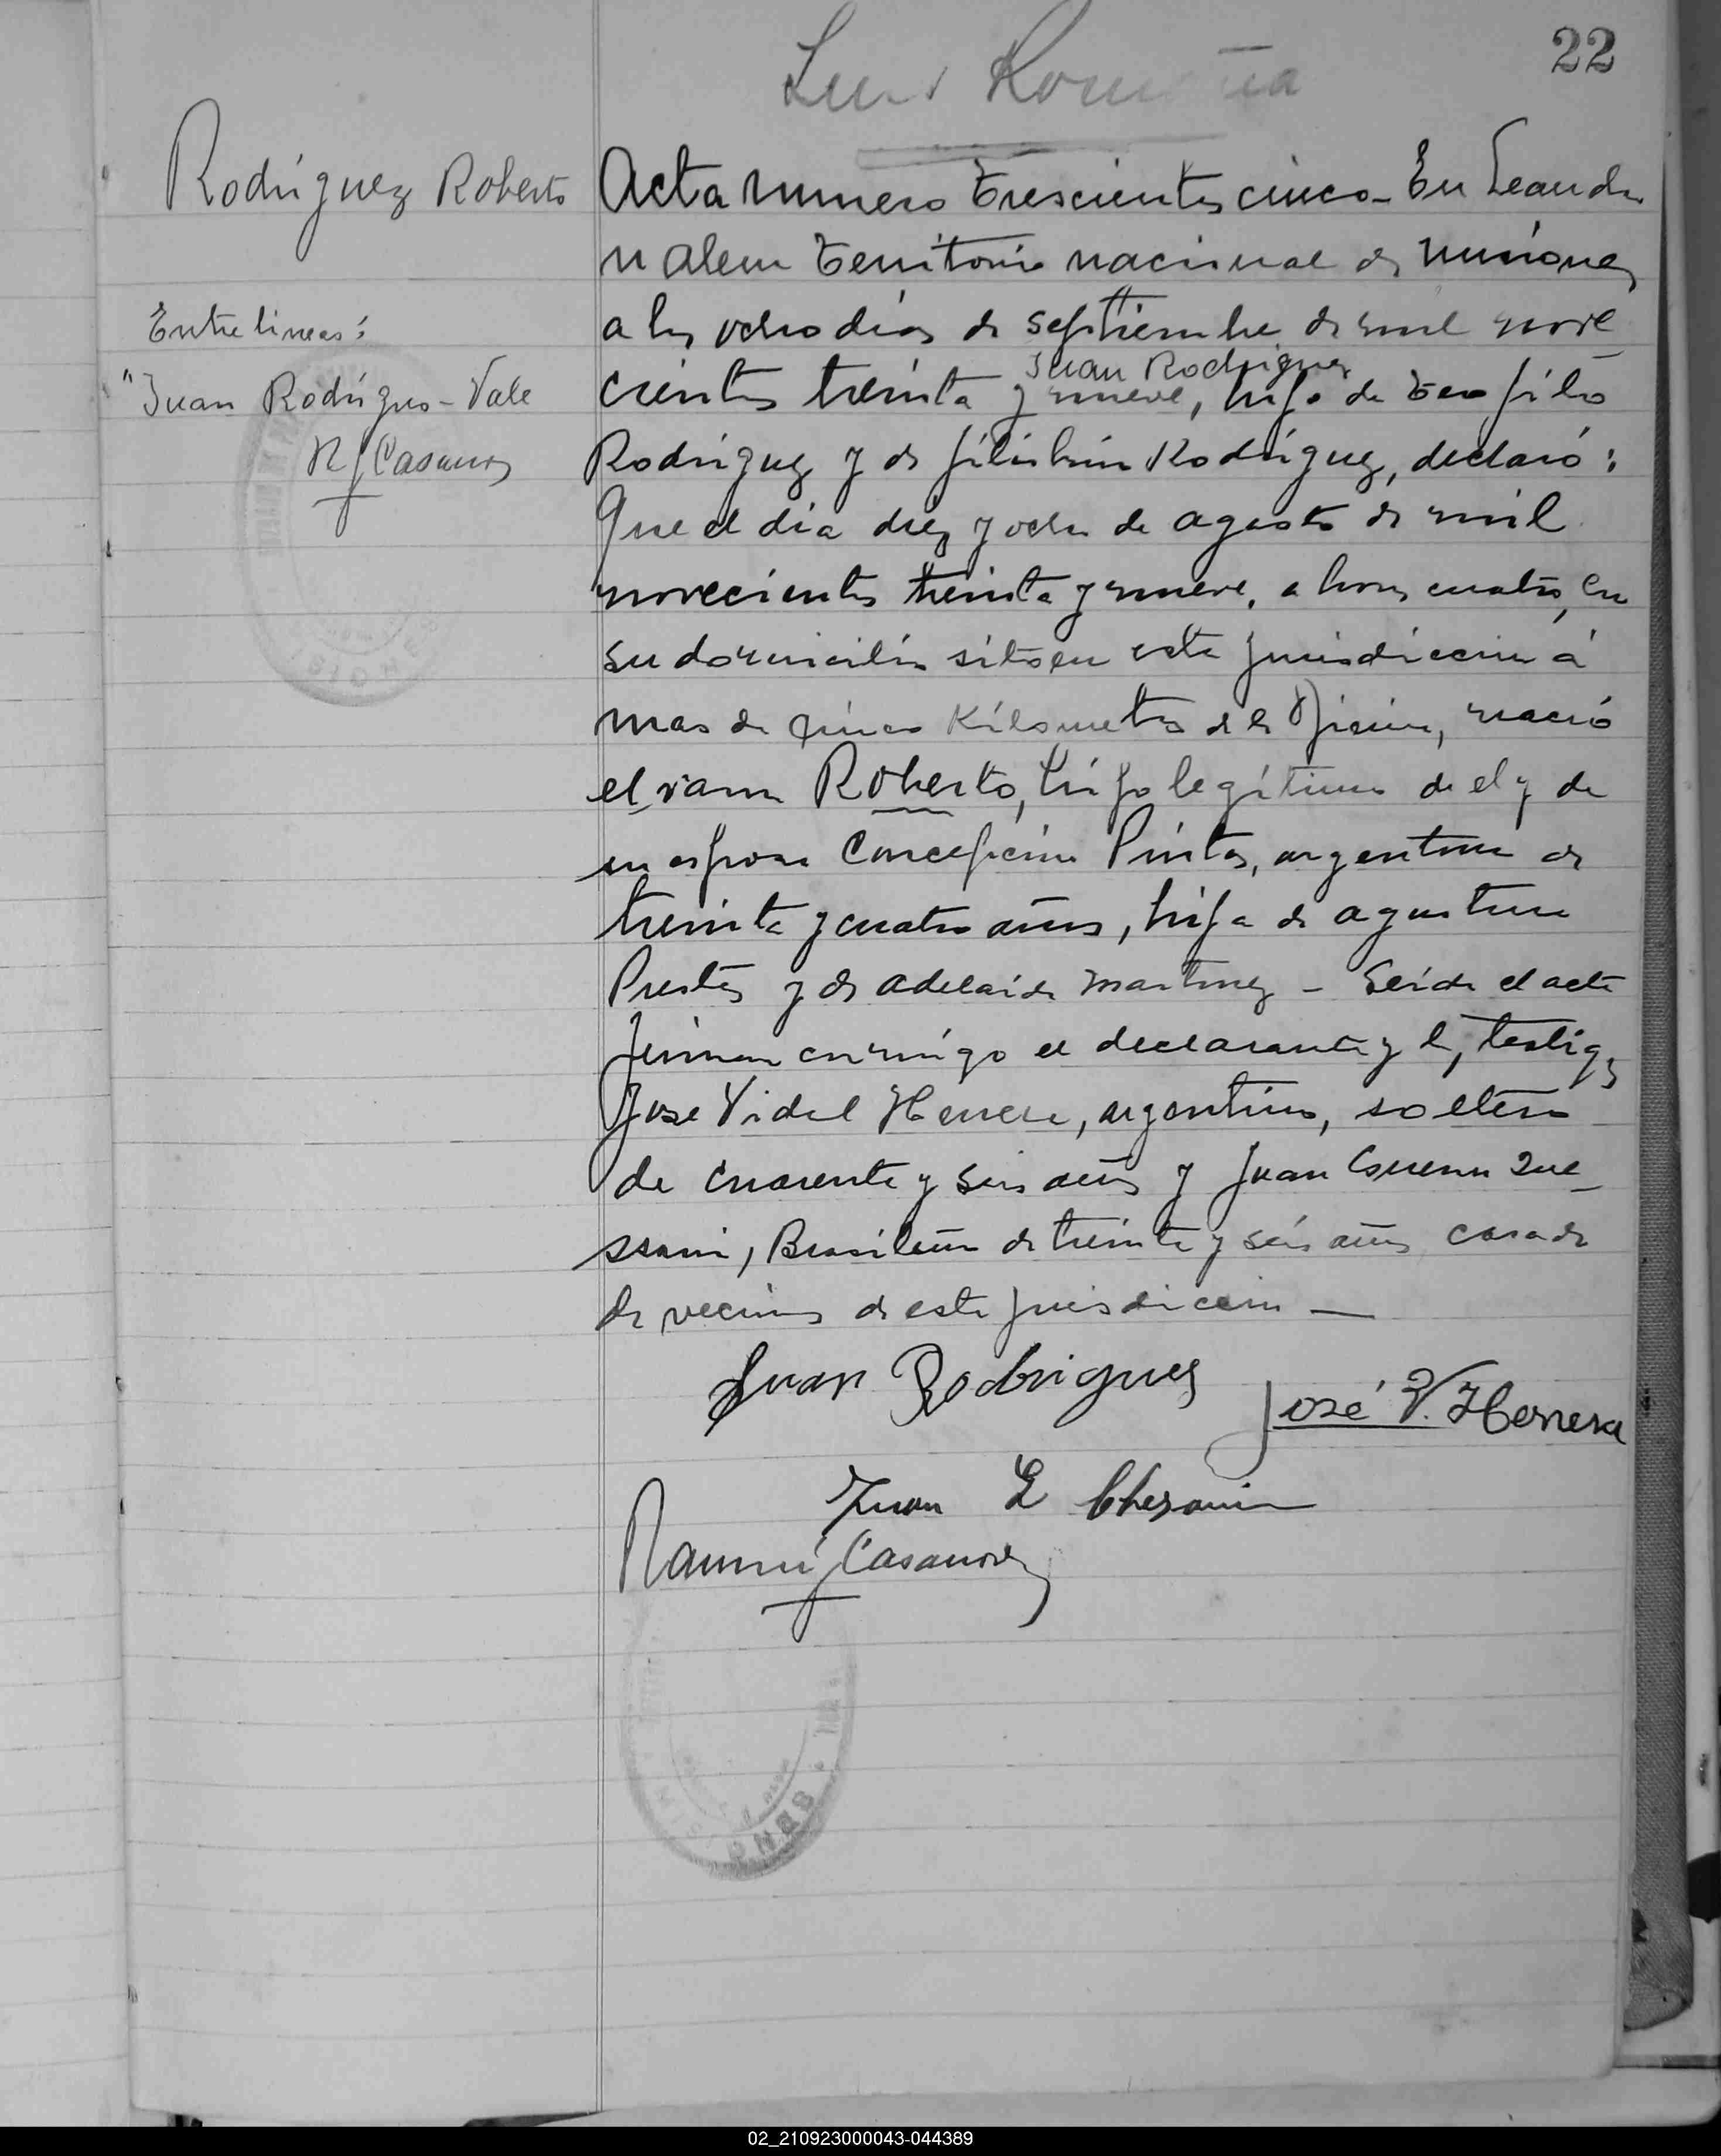 22
Luis
Rodriguez Roberto
Entre lineas:
"Juan Rodriguez - Vale
R J Casanov
Acta numero trescientos cinco - En Leandro
N Alem Territorio nacional de Misiones
a los ocho dias de septiembre de mil nove
cientos treinta y nueve, Juan Rodriguez hijo de Teofilo
Rodriguez y de Rodriguez, declaró:
Que el dia diez y ocho de agosto de mil
novecientos treinta y nueve, a horas cuatro, en
su domicilio sito en esta jurisdiccion á
mas de cinco Kilometros de la Oficina, nació
el varon Roberto, hijo legítimo de el y de
su esposa Concepcion argentina de
treinta y cuatro años, hija de
y de Adelaida Martinez - Leida el acta
firman conmigo el declarante y los testigos
José Vidal Herrera, argentino, soltero
de cuarenta y seis años y Juan
Brasilero de treinta y seis años casado
de vecinos de esta jurisdiccion —
Juan Rodrigues
José V. Herrera
Juan L
Ramón J Casanova
02_210923000043-044389